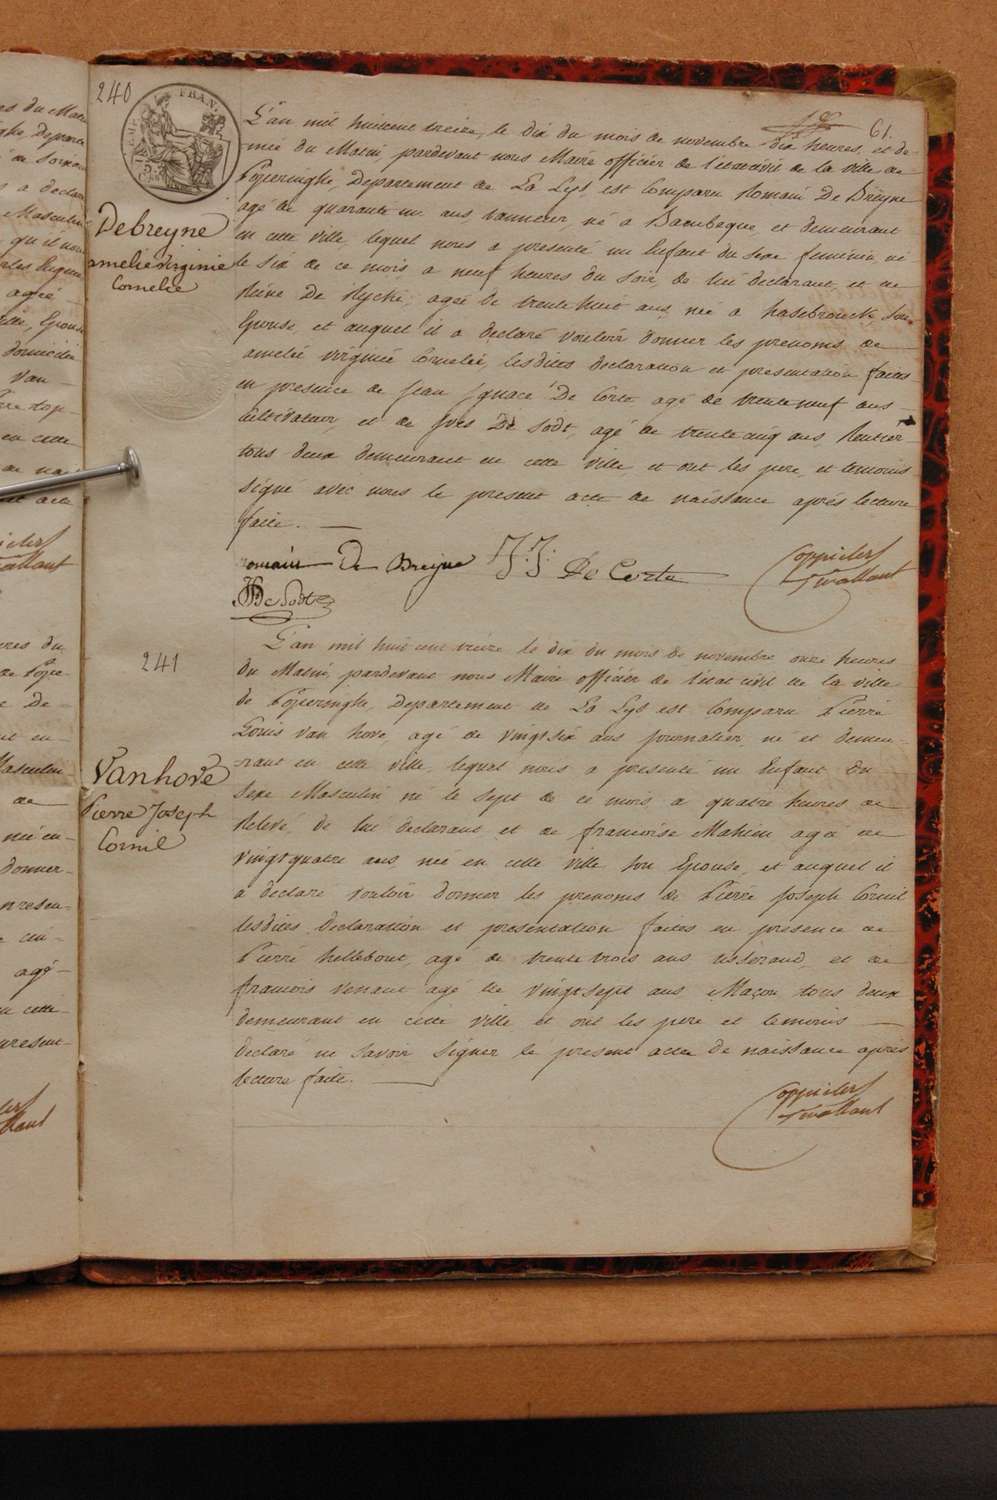 240
61.
L'an mil huitcent treize, le dix du mois de novembre dix heures, et de-
mie du Matin pardevant nous Maire officier de l'état civil de la ville de
Poperinghe, Departement de La Lys est Comparu Romain De Breyne
agé de quarante un ans tanneur, né à Bambeque, et demeurant
en cette ville, lequel nous a presenté un Enfant du sexe feminin né
le six de ce mois a neuf heures du soir, de lui declarant, et de
Reine De Rycke, agée de trente huit ans, née a hasebrouck, son
Epouse, et auquel il a declaré vouloir donner les prenoms de
amelie virginie Cornelie, lesdites declaration et presentation faites
en presence de Jean Ignace De Corte agé de trente neuf ans
cultivateur, et de Yves De Sodt, agé de trente cinq ans Rentier
tous deux demeurant en cette ville, et ont les pere, et temoins
signé avec nous le present acte de naissance après lecture
faite.
Debreyne
amelie Virginie
Cornelie
romain De Breyne J: J: De Corte
De Sodt
241
L'an mil huit cent treize le dix du mois de novembre onze heures
du Matin, pardevant nous Maire officier de l'etat civil de la ville
de Poperinghe, Departement de La Lys est Comparu Pierre
Louis van hove, agé de vingt six ans journalier, né et demeu-
rant en cette ville, lequel nous a presenté un Enfant du
sexe Masculin né le sept de ce mois a quatre heures de
Relevé, de lui declarant et de francoise Mahieu agée de
vingt quatre ans, née en cette ville son Epouse, et auquel il
a declaré vouloir donner les prenoms de Pierre Joseph Cornil
lesdites Declaration et presentation faites en presence de
Pierre hellebout, agé de trente trois ans tisserand, et de
francois venant agé de vingt sept ans Maçon tous deux
demeurant en cette ville et ont les pere et temoins
declaré ne savoir signer le present acte de naissance après
lecture faite.
Vanhove
Pierre Joseph
Cornil